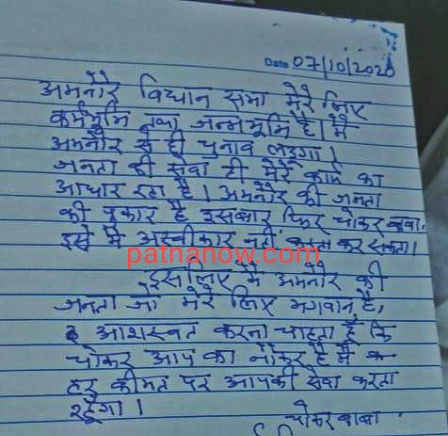 Date 07/10/2020
अमनौर विधान सभा मेरे लिए
कर्मभूमि तथा जन्मभूमि है। मैं
अमनौर से ही चुनाव लड़ुगा।
जनता की सेवा ही मेरे काम का
आधार रहा है। अमनौर की जनता
की पुकार है इसबार फिर चोकर बाबा.
इसे मैं अस्वीकार नहीं कर सकता।
patnanow.com
इसलिए मैं अमनौर की
जनता जो मेरे लिए भगवान है,
आशस्वत करना चाहता हूँ कि
चोकर आप का नौकर है मैं
हर कीमत पर आपकी सेवा करता
रहूँगा।
चोकर बाबा